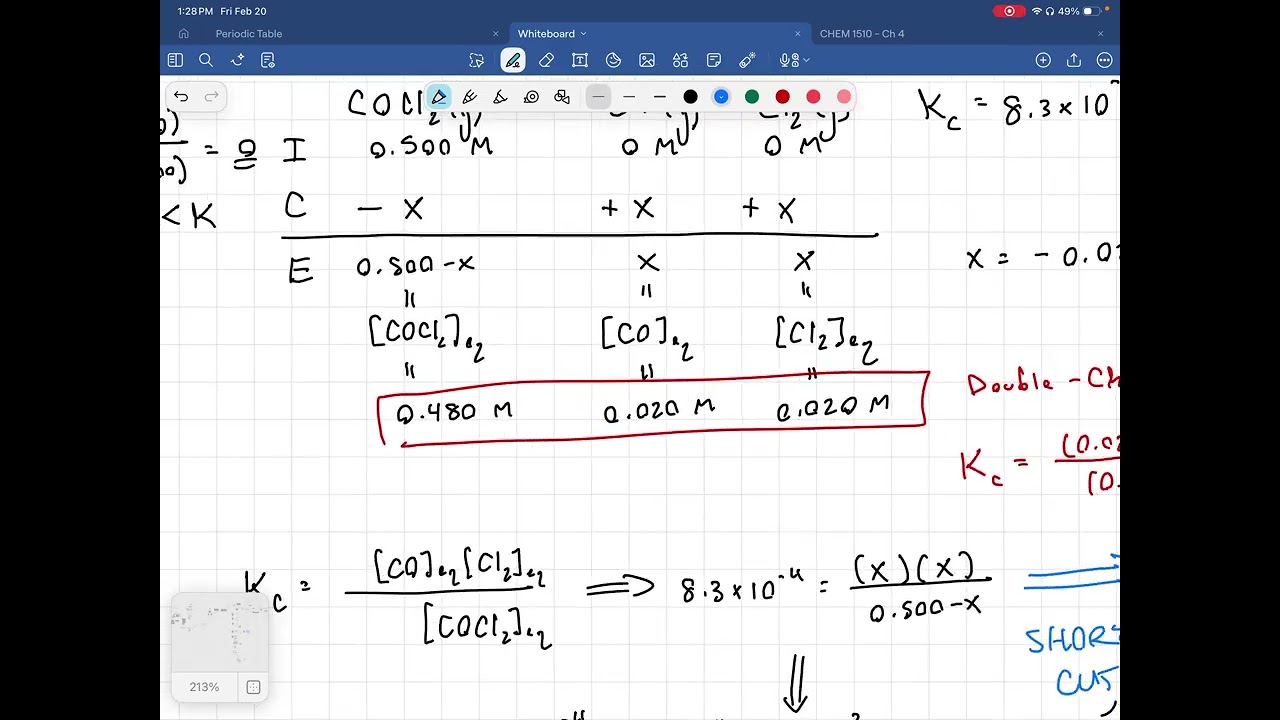 1:28 PM Fri Feb 20
49%
Periodic Table
Whiteboard
CHEM 1510 - Ch 4
COCl₂(g)
Cl₂(g)
Kc = 8.3 x 10
= 0 I 0.500 M 0 M 0 M
< K C - X + X + X
E 0.500 - x x x
x = - 0.0
[COCl₂]eq [CO]eq [Cl₂]eq
0.480 M 0.020 M 0.020 M
Double - Ch
Kc = (0.0
(0.
Kc = [CO]eq[Cl₂]eq ⟹ 8.3 x 10⁻⁴ = (x)(x)
[COCl₂]eq 0.500 - x
SHORT
CUT
213%